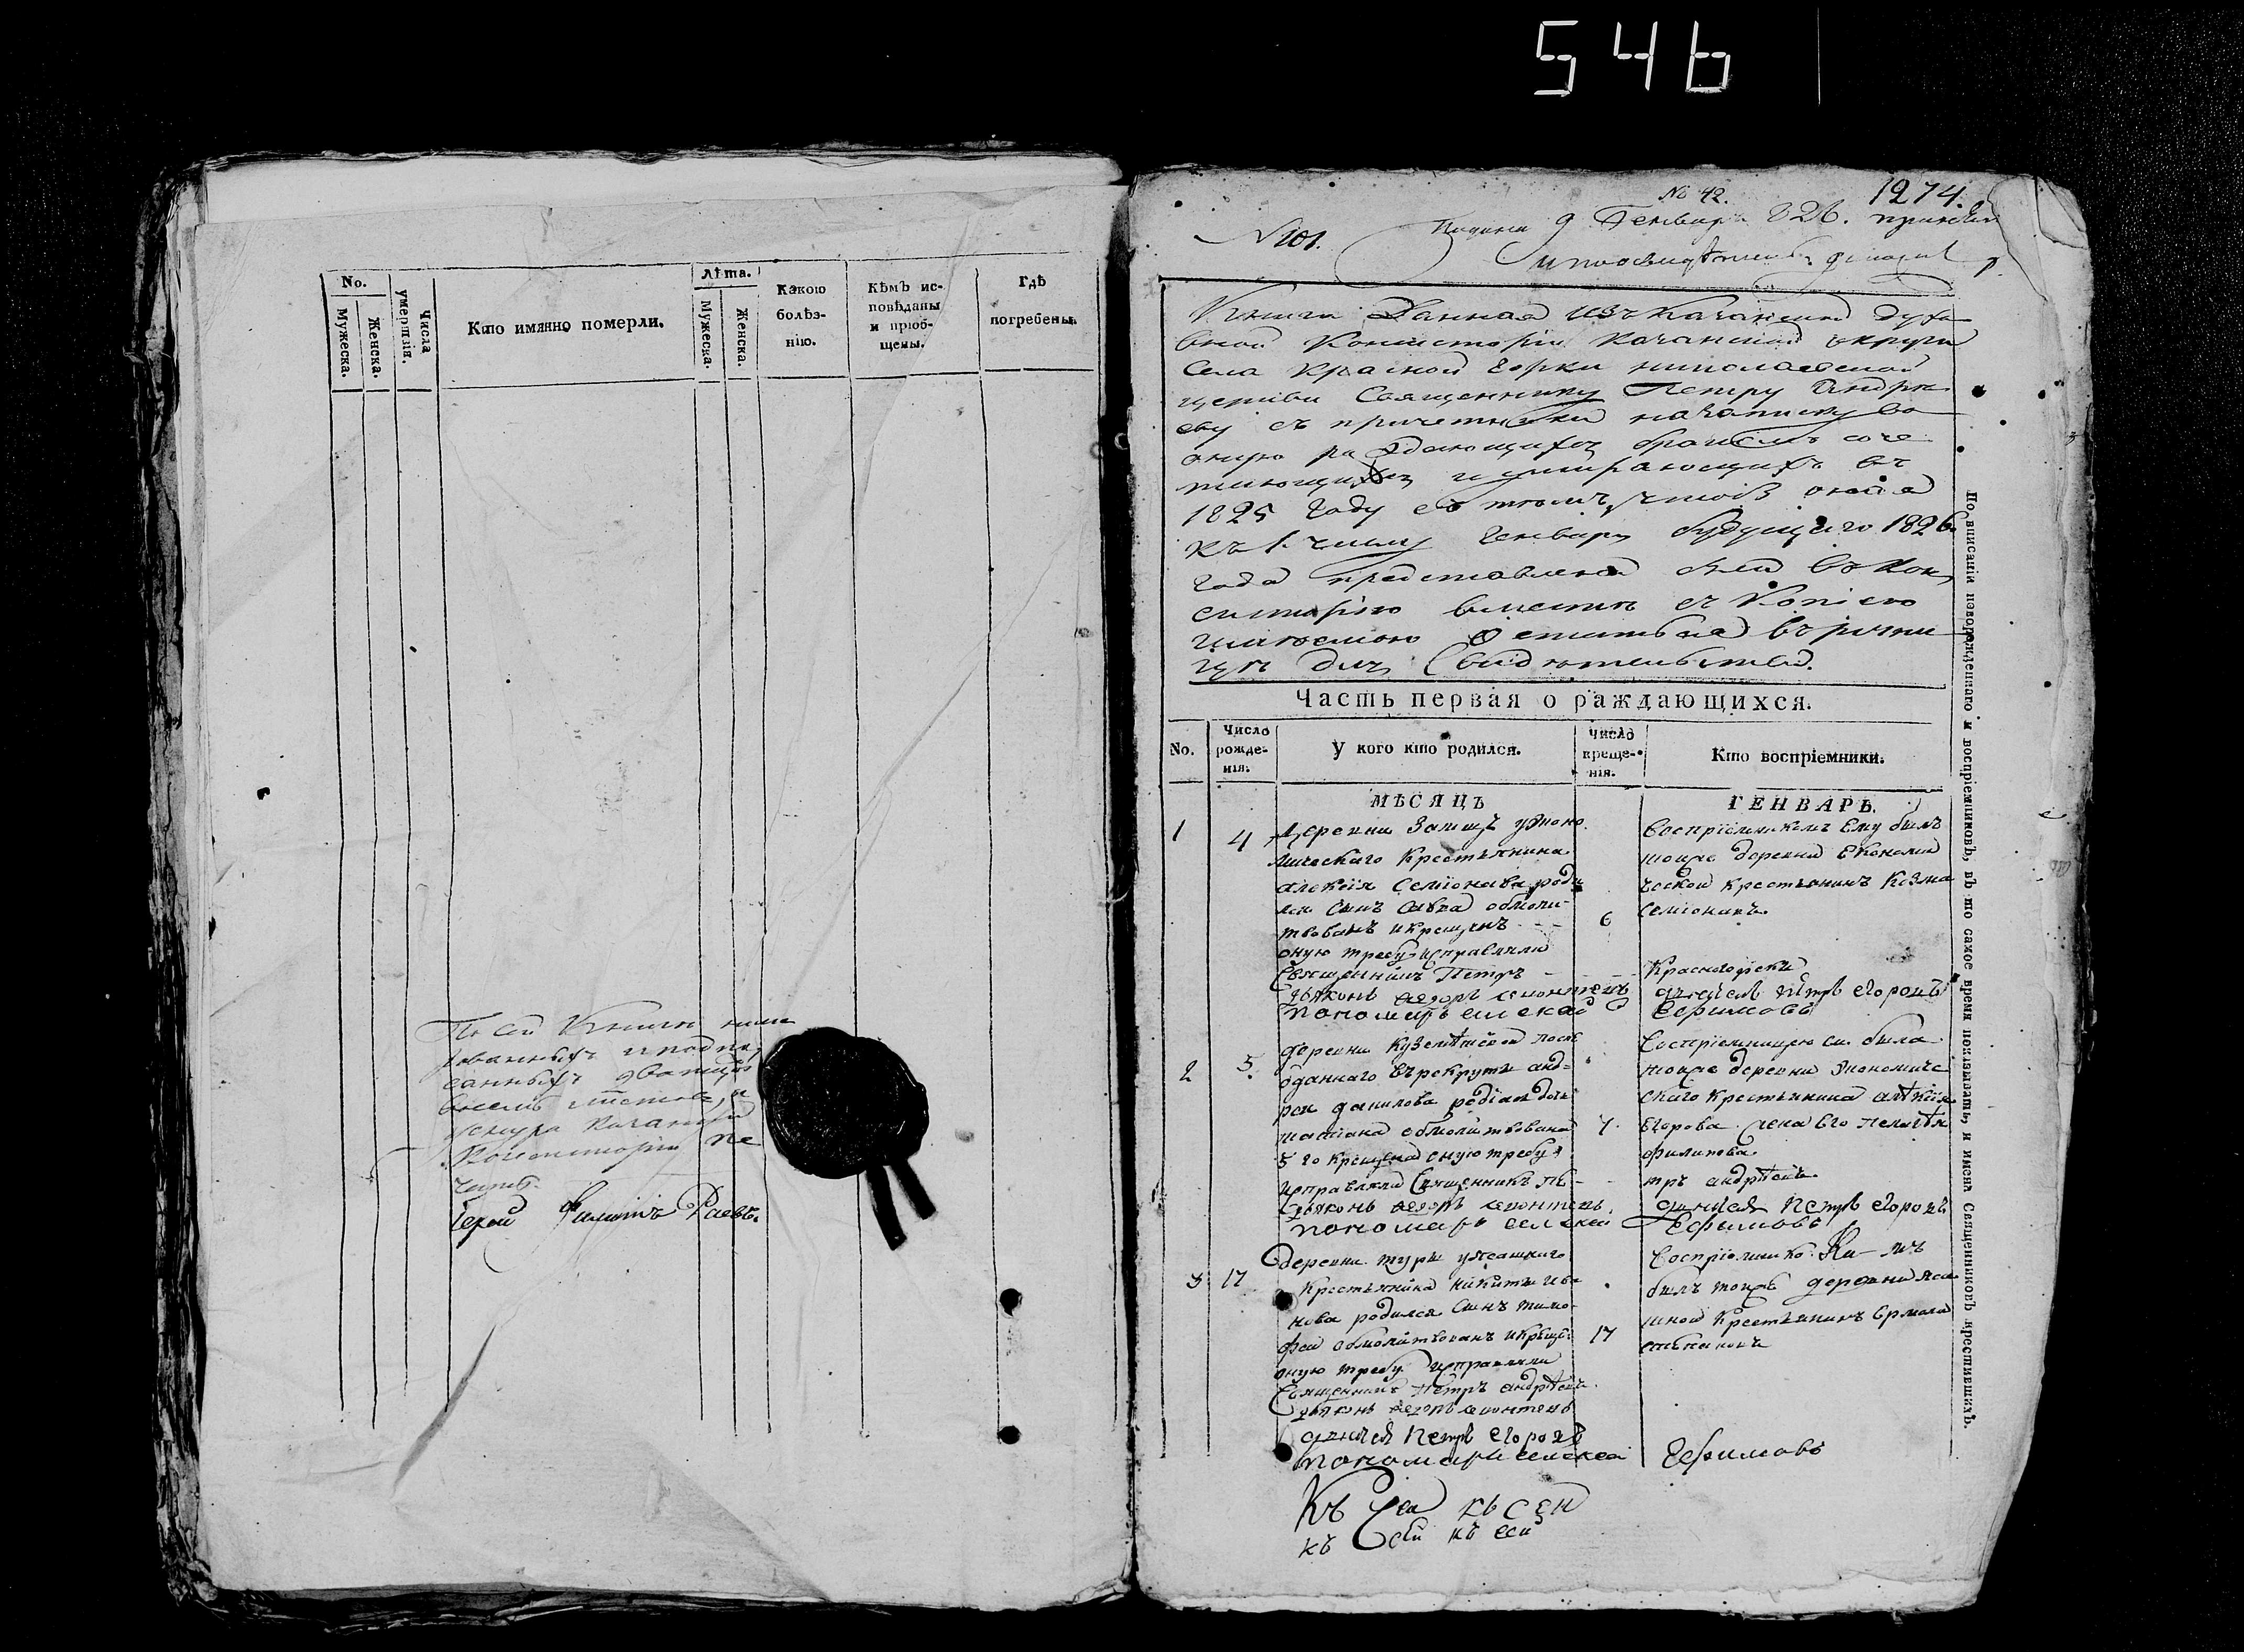 546
No.
Мужеска.
Женска.
Числа умершія.
Кто имянно померли.
Лѣта.
Мужеска.
Женска.
Какою
болѣз-
нію.
Кѣмъ ис-
повѣданы
и пріоб-
щены.
Гдѣ
погребены.
По сей Книги нуме
рованныхъ и подпи
санныхъ дватцать
восемь листовъ, и
Консисторіи пе
чать.
Іерей Раевъ.
No 42.
1274.
N 101.
9 Генваря 826.
Книга данная изъ Казанской духо
вной Консисторіи Казанской округи
Села Красной Горки николаевской
церкви Священнику Петру Андре
еву съ причетники на записку во
оную раждающихся бракомъ соче
тающихся и умирающихъ въ
1825 году съ тѣмъ, чтобъ оная
къ 1. числу Генваря будущаго 1826
года представлена была въ Кон
систорію вместе съ Копіею
оставя въ ризни
це для Свидетельства.
Часть первая о раждающихся.
No.
Число
рожде-
нія.
У кого кто родился.
Число
креще-
нія.
Кто воспріемники.
МѢСЯЦЪ
ГЕНВАРЬ.
1
4
Деревни Займищъ эконо
мическаго Крестьянина
алексія Семіонава роди
лся сынъ Сава обмоли-
твованъ и крещенъ
6
оную требу исправляли
Священникъ Петръ
дьяконъ леонтевъ
пономарь алексей
Воспріемникомъ Ему былъ
тоиже деревни Економи
ческой крестьянинъ Козма
Семіоновъ.
Красногорски
дьячекъ Петръ егоровъ
Ефимовъ
2
5.
деревни Куземетевой после
отданнаго въ рекруты анд-
рея данилова роділасъ дочь
татіана обмолитвована
7.
5 го Крещена оную требу
исправляли Священникъ Пе-
дьяконъ леонтевъ
пономарь алексей
Воспріемницею ей была
тоиже деревни Экономиче
скаго крестьянина алѣксія
Егорова жена Его пелагѣя
филипова.
тръ андрѣевъ
дьячекъ Петръ егоровъ
Ефимовъ
3
17
деревни туры уясашнаго
Крестьянина никиты ива
нова родился сынъ тимо-
фей обмолитвованъ и крещенъ
17
оную требу исправляли
Священникъ Петръ андрѣевъ
дьяконъ леонтевъ
дьячекъ Петръ егоровъ
пономарь алексей
Воспріемнико мъ
былъ тоижъ деревни яса
шной Крестьянинъ Ермола
степановъ
Ефимовъ
Къ сей къ сей
къ сей къ сей
По вписаніи новорожденнаго и воспріемниковъ, въ то самое время показывать, и имена Священниковъ крестившихъ.